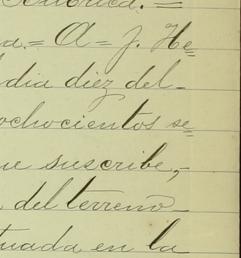 a.= A = J. He=
dia diez del-
ochocientos se=
ue suscribe,-
del terreno
tuada en la